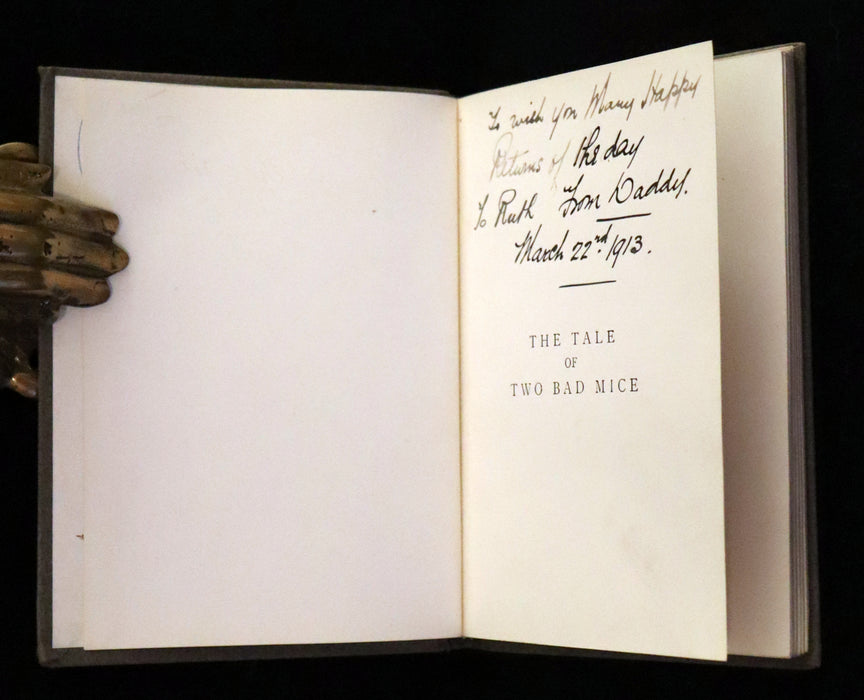 To wish you Many Happy
Returns of the day
To Ruth From Daddy.
March 22rd. 1913.
THE TALE
OF
TWO BAD MICE